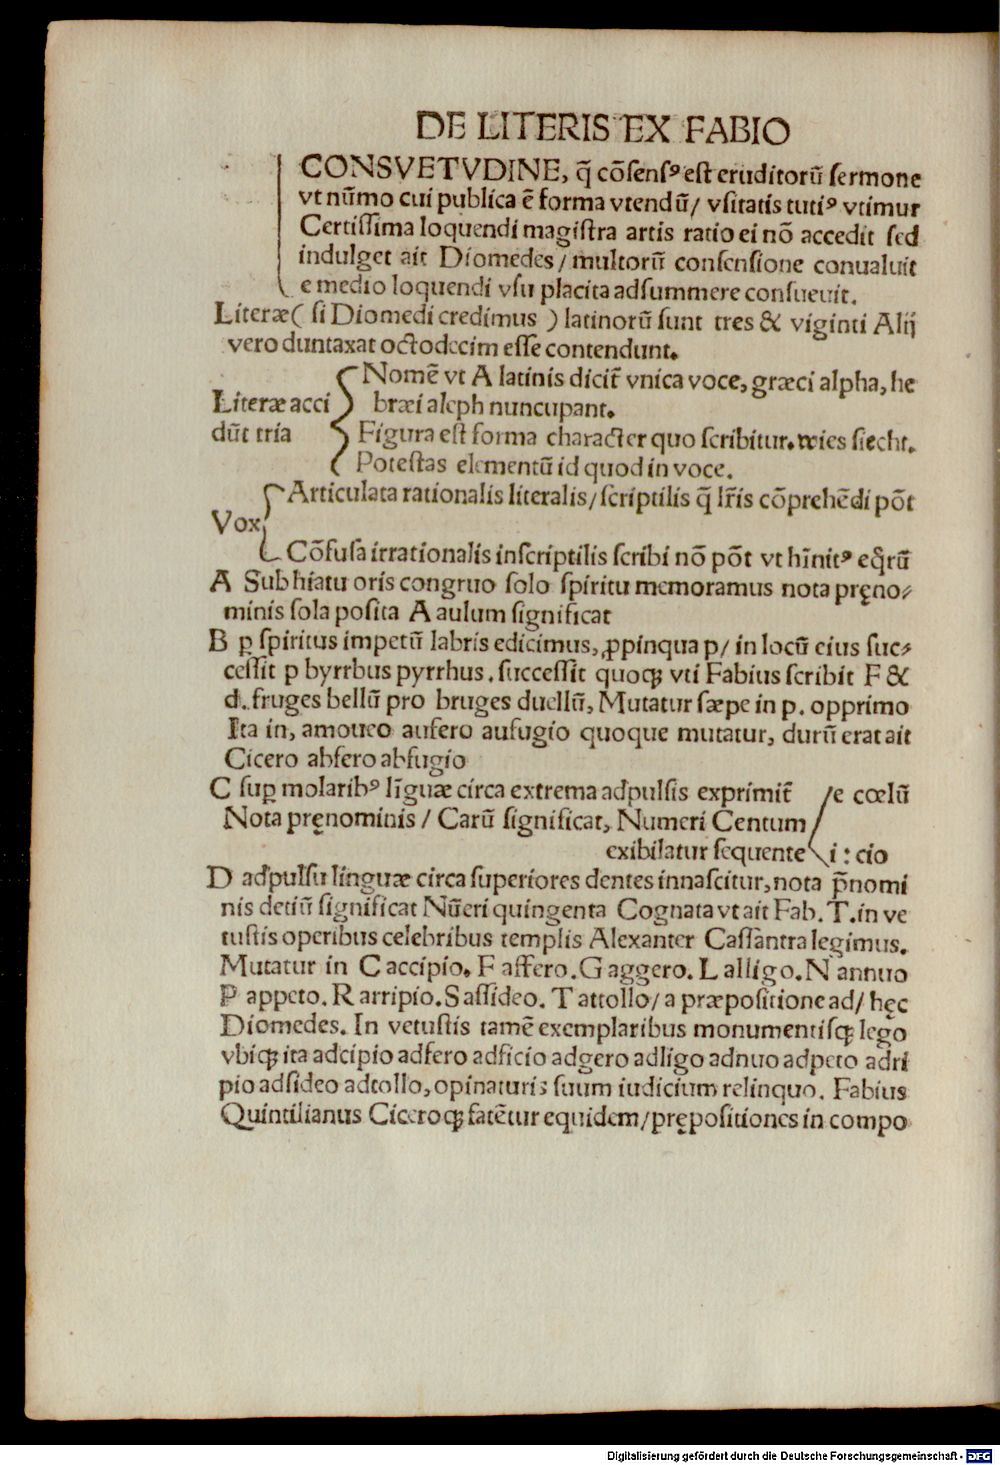 DE LITERIS EX FABIO
CONSVETVDINE, q̃ cõsensꝰ est eruditorũ sermone
vt nũmo cui publica ẽ forma vtendũ/ vsitatis tutiꝰ vtimur
Certissima loquendi magistra artis ratio ei nõ accedit sed
indulget ait Diomedes/ multorũ consensione conualuit
e medio loquendi vsu placita adsummere consueuit.
Literæ( si Diomedi credimus ) latinorũ sunt tres & viginti Alij
vero duntaxat octodecim esse contendunt.
Nomẽ vt A latinis dicit̃ vnica voce, græci alpha, he
Literæ acci bræi aleph nuncupant.
dũt tria Figura est forma character quo scribitur. wies siecht.
Potestas elementũ id quod in voce.
Articulata rationalis literalis/ scriptilis q̃ lr̃is cõprehẽdi põt
Vox
Cõfusa irrationalis inscriptilis scribi nõ põt vt hĩnitꝰ eq̃rũ
A Sub hiatu oris congruo solo spiritu memoramus nota pręno⸗
minis sola posita A aulum significat
B ꝑ spiritus impetũ labris edicimus, ꝓpinqua p/ in locũ eius suc⸗
cessit p byrrbus pyrrhus. successit quoqꝫ vti Fabius scribit F &
d. fruges bellũ pro bruges duellũ, Mutatur sæpe in p. opprimo
Ita in, amoueo aufero aufugio quoque mutatur, durũ erat ait
Cicero abfero abfugio
C suꝑ molaribꝰ lĩguæ circa extrema adpulsis exprimit̃ e cœlũ
Nota pręnominis/ Carũ significat, Numeri Centum
exibilatur sequente i : cio
D adpulsu linguæ circa superiores dentes innascitur, nota p̃nomi
nis detiũ significat Nũeri quingenta Cognata vt ait Fab. T. in ve
tustis operibus celebribus templis Alexanter Cassantra legimus.
Mutatur in C accipio. F affero. G aggero. L alligo. N annuo
P appeto. R arripio. S assideo. T attollo/ a præpositione ad/ hęc
Diomedes. In vetustis tamẽ exemplaribus monumentisqꝫ lego
vbiqꝫ ita adcipio adfero adficio adgero adligo adnuo adpeto adri
pio adsideo adtollo, opinaturis suum iudicium relinquo. Fabius
Quintilianus Ciceroqꝫ fatẽtur equidem/ prępositiones in compo
Digitalisierung gefördert durch die Deutsche Forschungsgemeinschaft - DFG